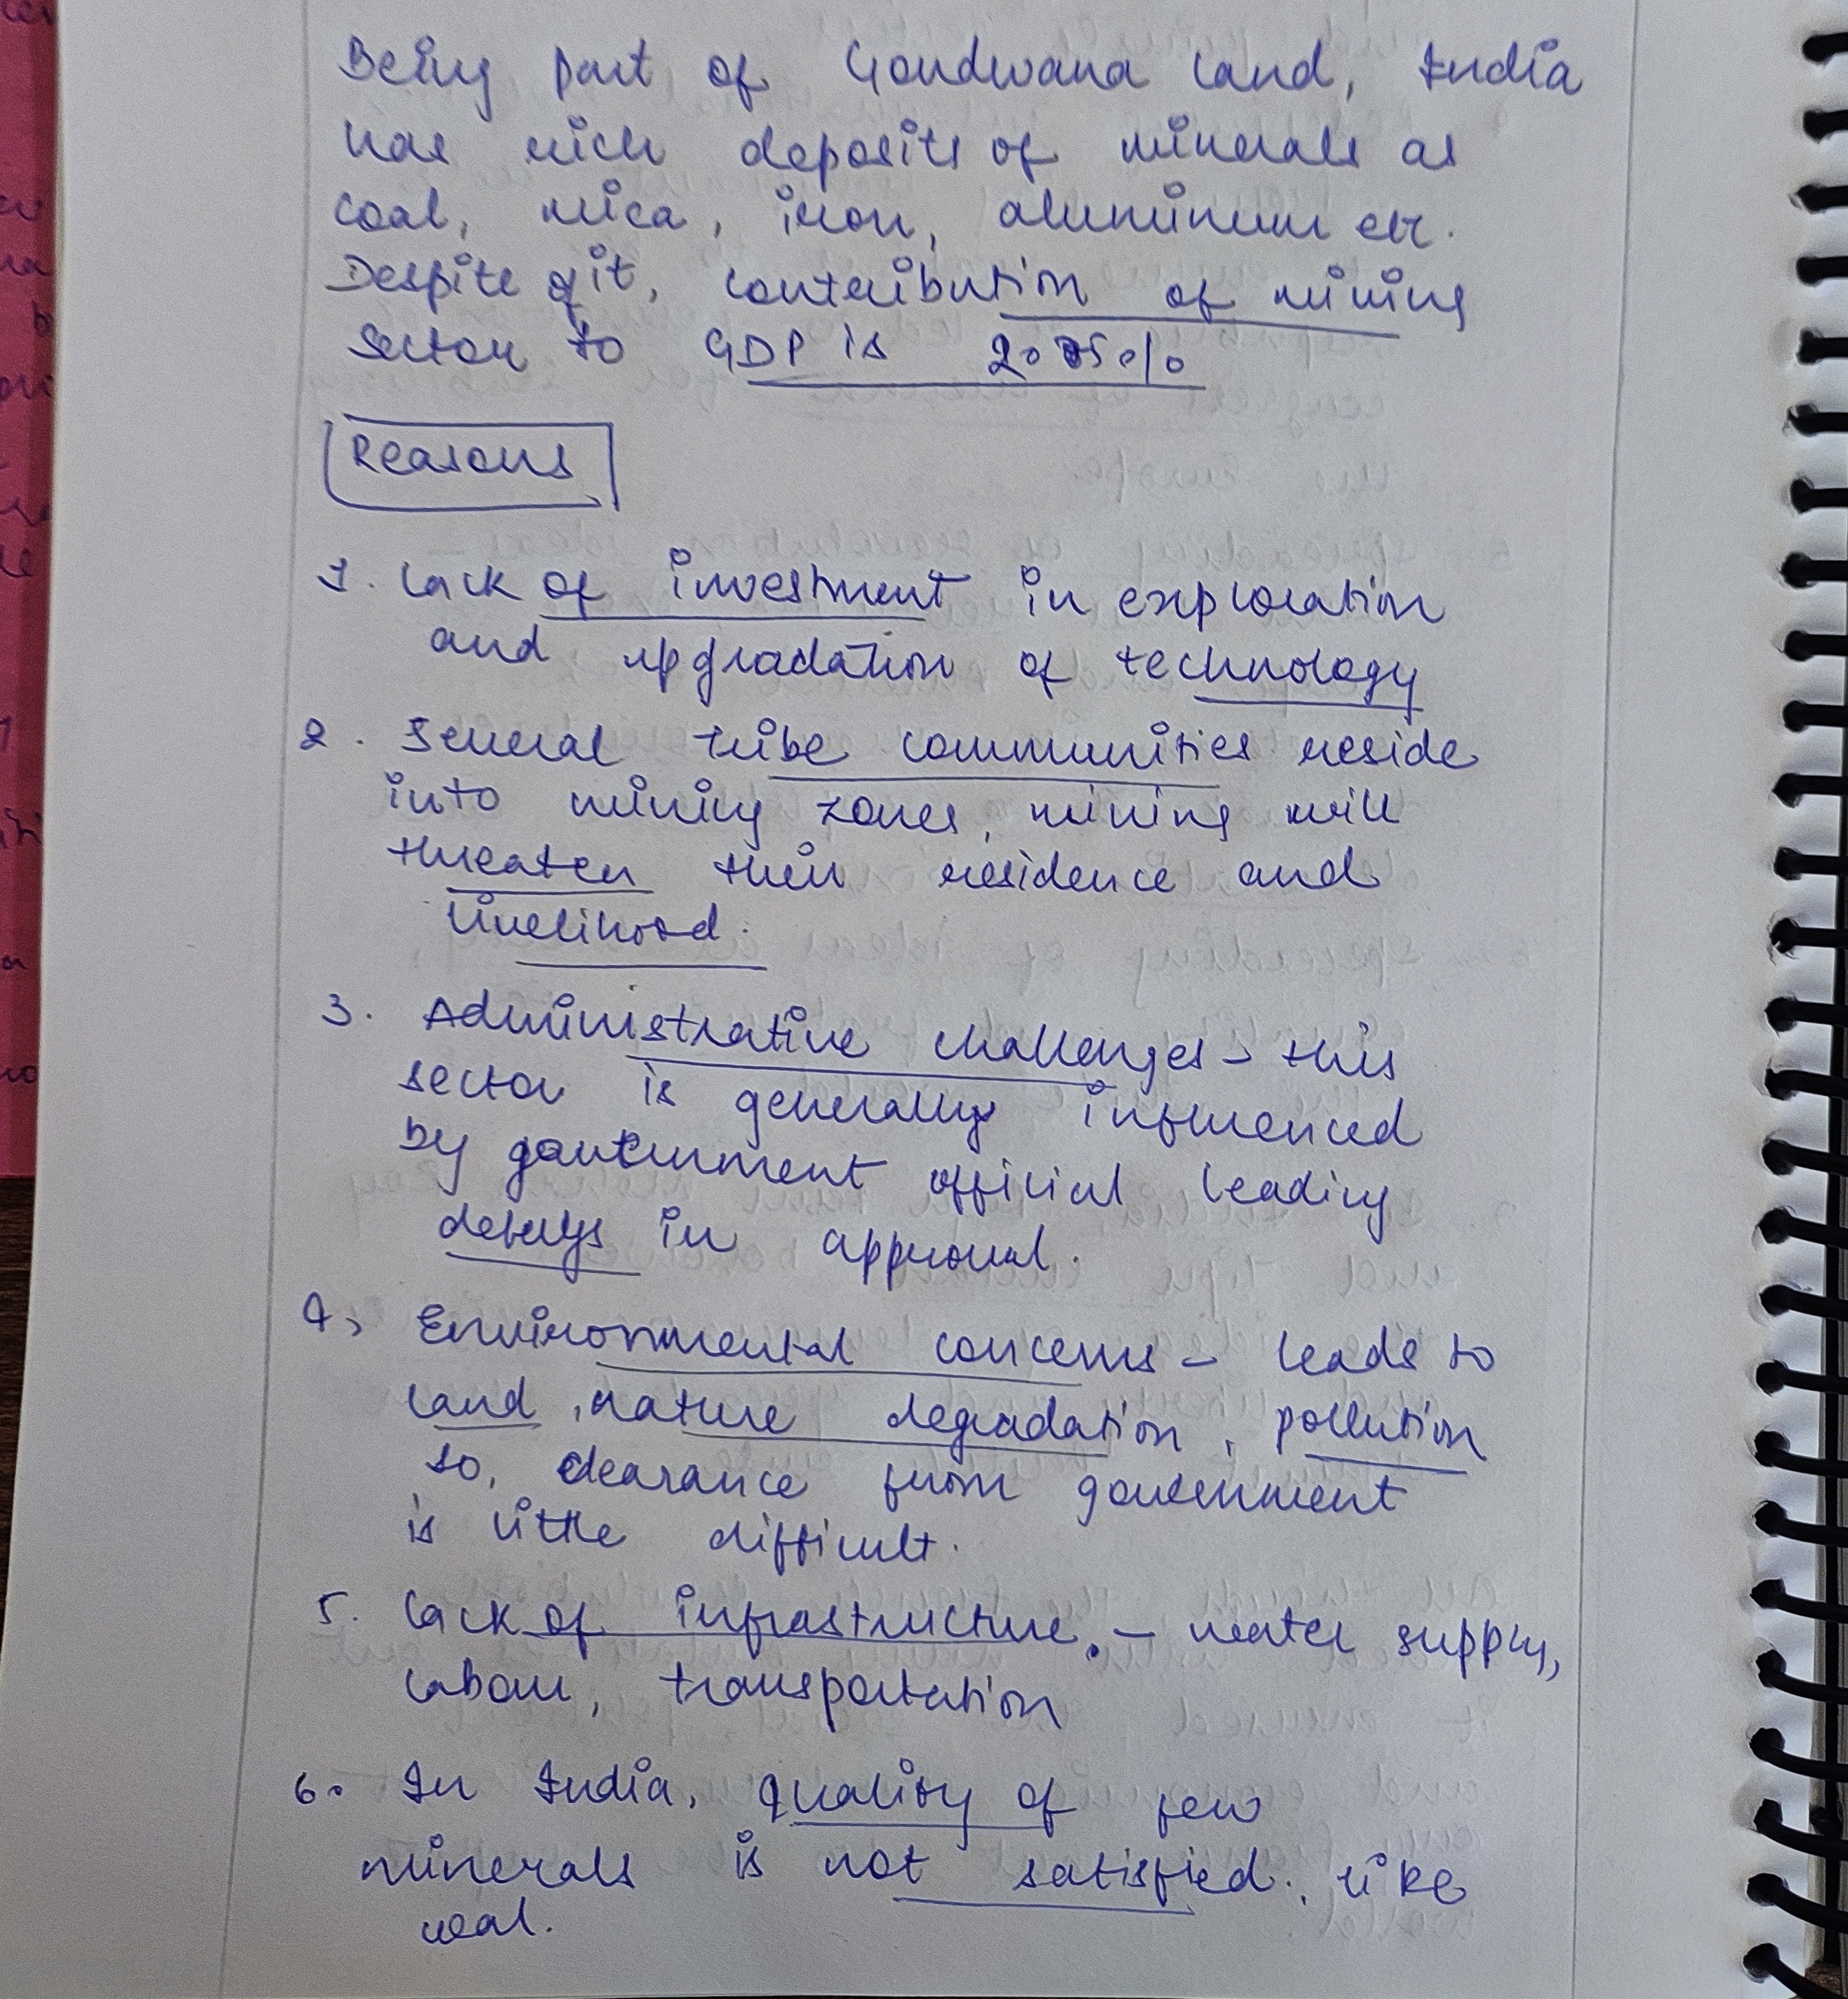 Being part of Gondwana land, India
has rich deposits of minerals as
coal, mica, iron, aluminum etc.
Despite of it, contribution of mining
sector to GDP is
Reasons
1. Lack of investment in exploration
and upgradation of technology
2. Several tribe communities reside
into mining zones, mining will
threaten their residence and
livelihood.
3. Administrative challenges - this
sector is generally influenced
by government official leading
delays in approval.
4, Environmental concerns - leads to
land, nature degradation, pollution
so, clearance from government
is little difficult.
5. Lack of infrastructure. - water supply,
labour, transportation
6. In India, quality of few
minerals is not satisfied. like
coal.